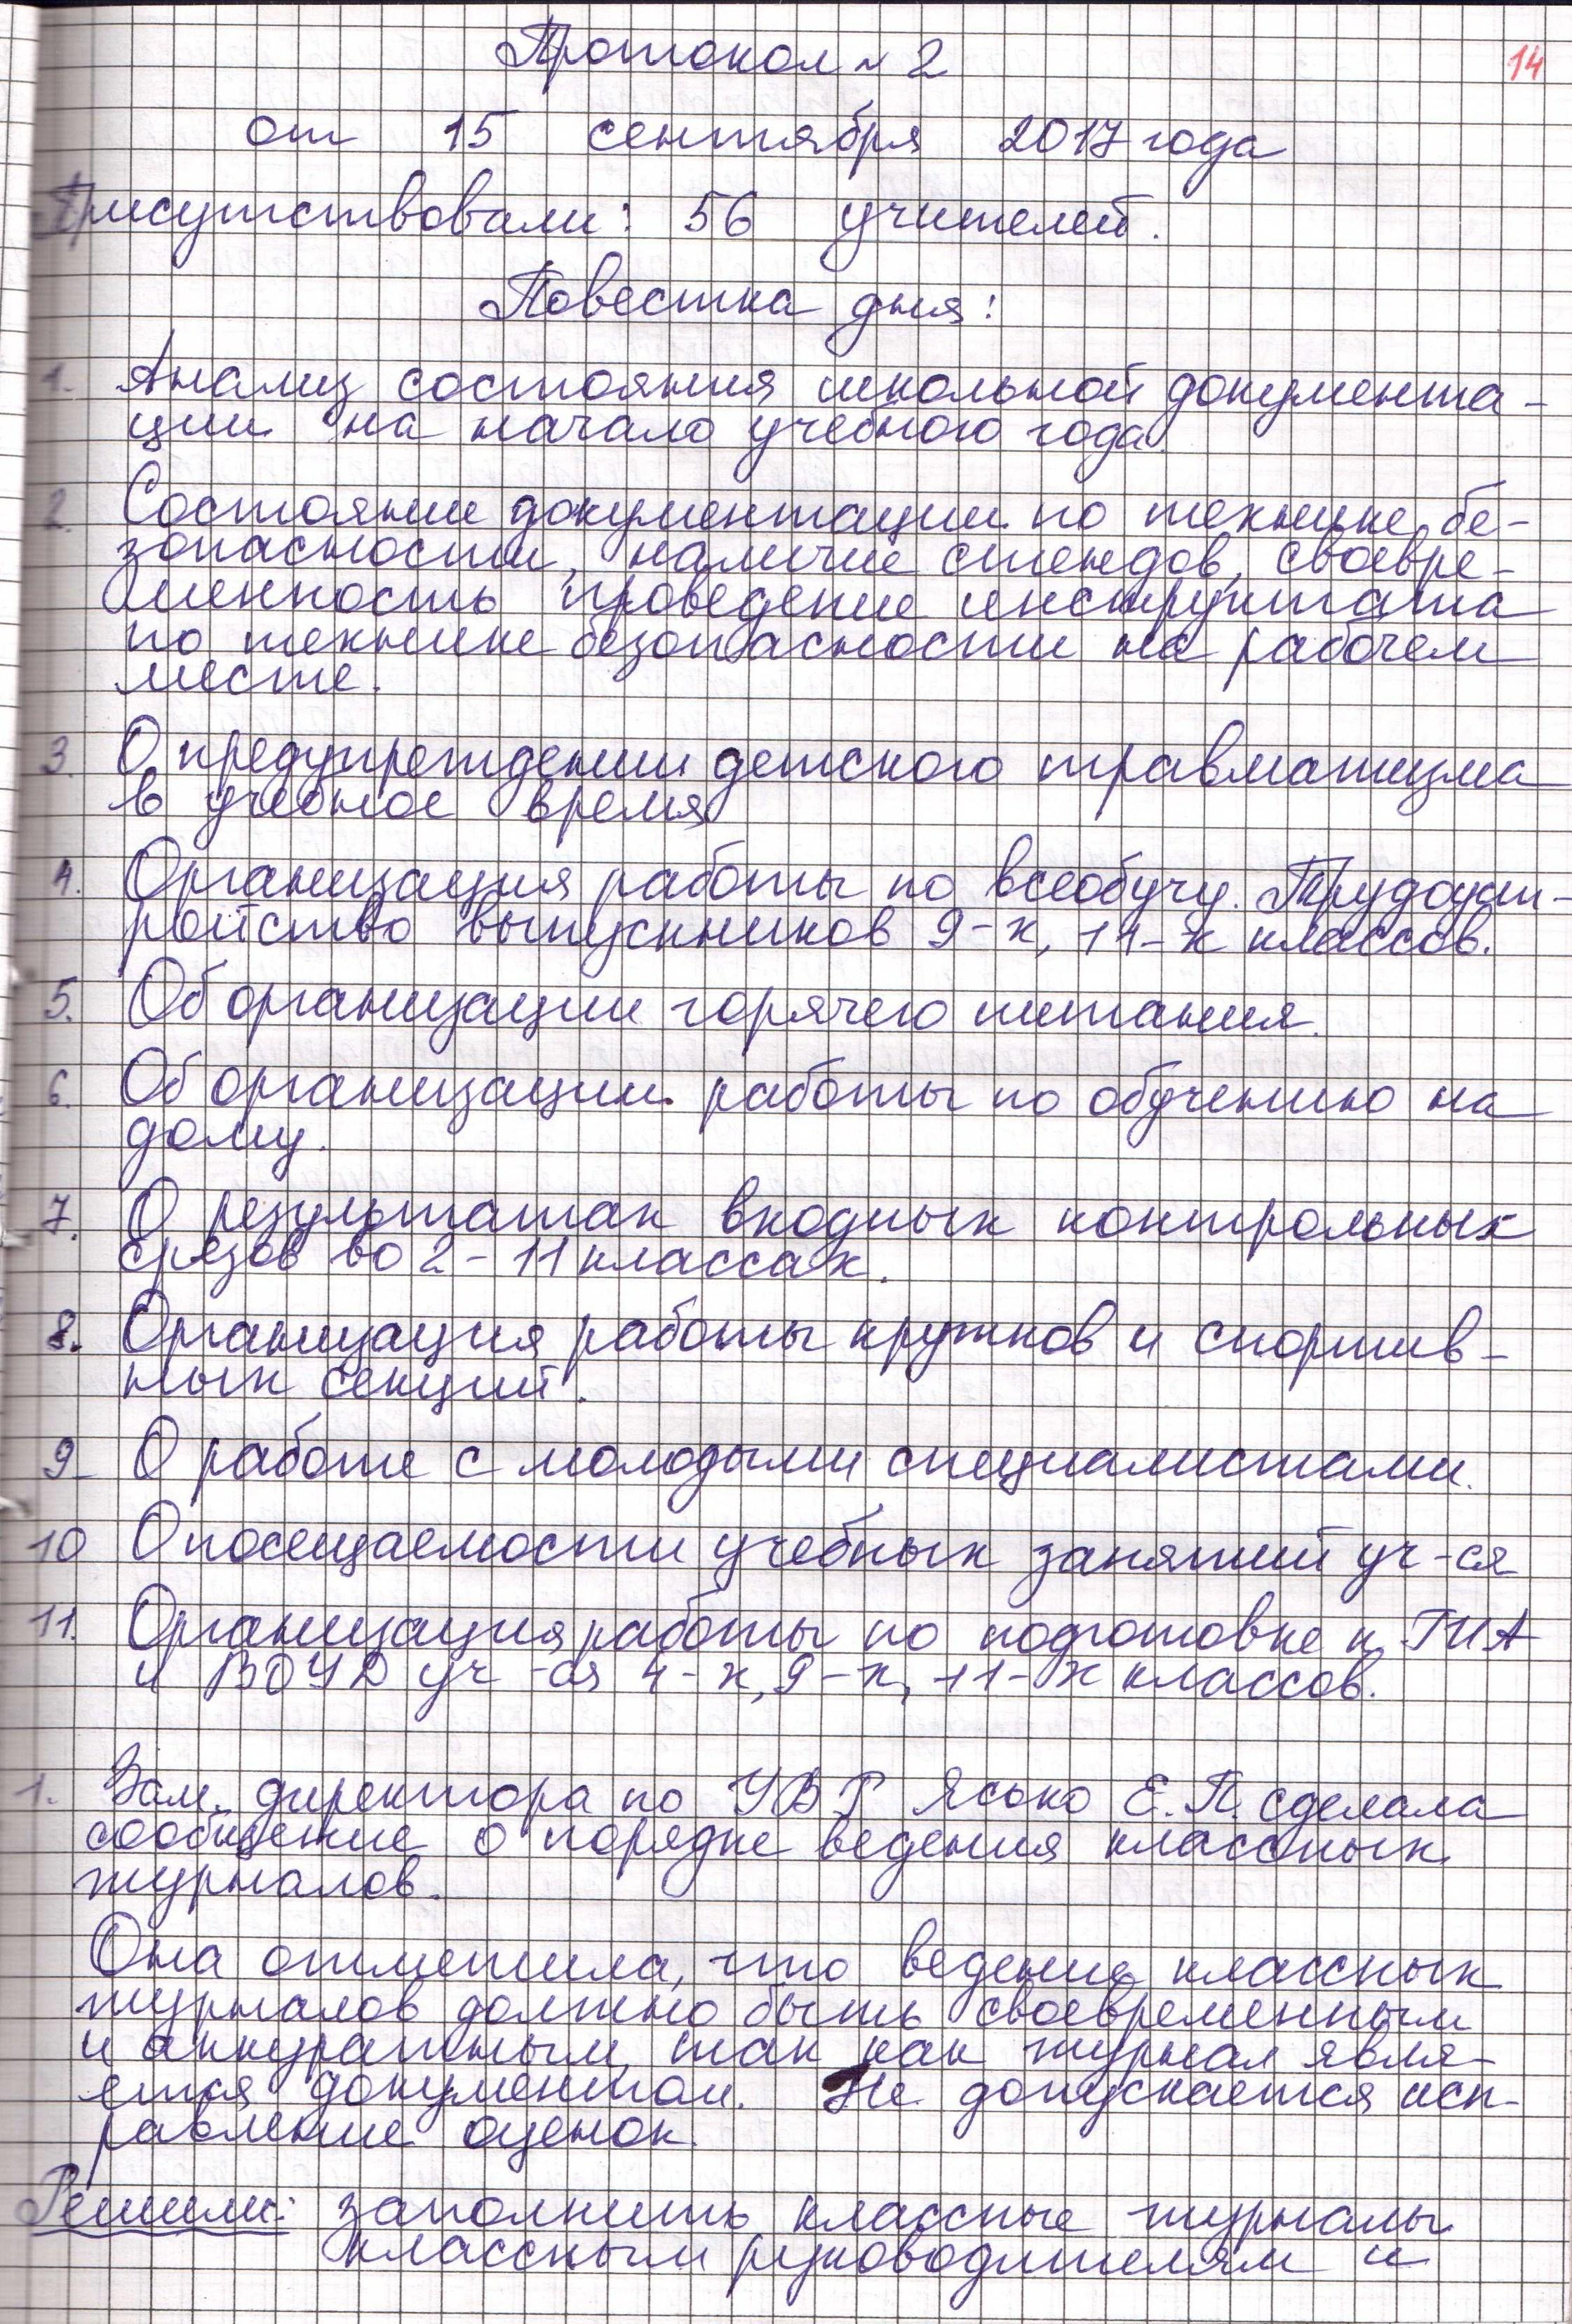 14
Протокол № 2
от 15 сентября 2017 года
Присутствовали: 56 учителей.
Повестка дня:
1. Анализ состояния школьной документа-
ции на начало учебного года.
2. Состояние документации по технике бе-
зопасности, наличие стендов, своевре-
менность проведение инструктажа
по технике безопасности на рабочем
месте.
3. О предупреждении детского травматизма
в учебное время
4. Организация работы по всеобучу. Трудоуст-
ройство выпускников 9-х, 11-х классов.
5. Об организации горячего питания.
6. Об организации работы по обучению на
дому.
7. О результатах входных контрольных
срезов во 2-11 классах.
8. Организация работы кружков и спортив-
ных секций.
9. О работе с молодыми специалистами.
10 О посещаемости учебных занятий уч-ся
11. Организация работы по подготовке к ГИА
и ВОУД уч-ся 4-х, 9-х, 11-х классов.
1. Зам. директора по УВР Ясько Е.П. сделала
сообщение о порядке ведения классных
журналов.
Она отметила, что ведение классных
журналов должно быть своевременным
и аккуратным, так как журнал явля-
ется документом. Не допускается исп-
равление оценок.
Решили: заполнить классные журналы
классным руководителям и